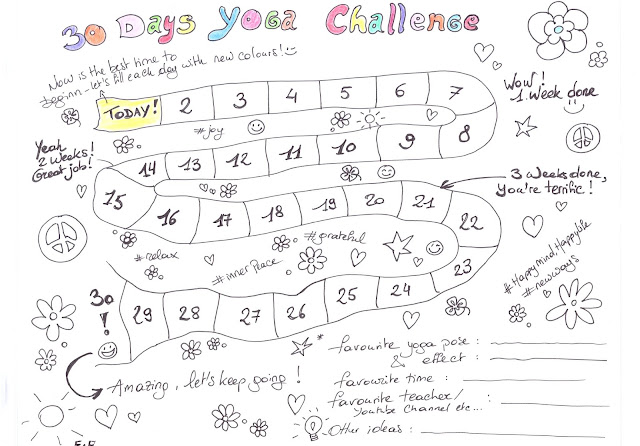 30 Days Yoga Challenge
Now is the best time to
beginn - let's fill each day with new colours!
TODAY! 2 3 4 5 6 7
Wow!
1. Week done
#joy
8 9 10 11 12 13 14
Yeah
2 Weeks!
Great job!
15 16 17 18 19 20 21
3 Weeks done,
you're terrific!
22
23
#grateful
#relax
#inner Peace
#HappyMindHappyLife
#newways
24 25 26 27 28 29
30
!
Amazing, let's keep going!
*
favourite yoga pose :
& effect :
favourite time :
favourite teacher/
Youtube Channel etc... :
Other ideas :